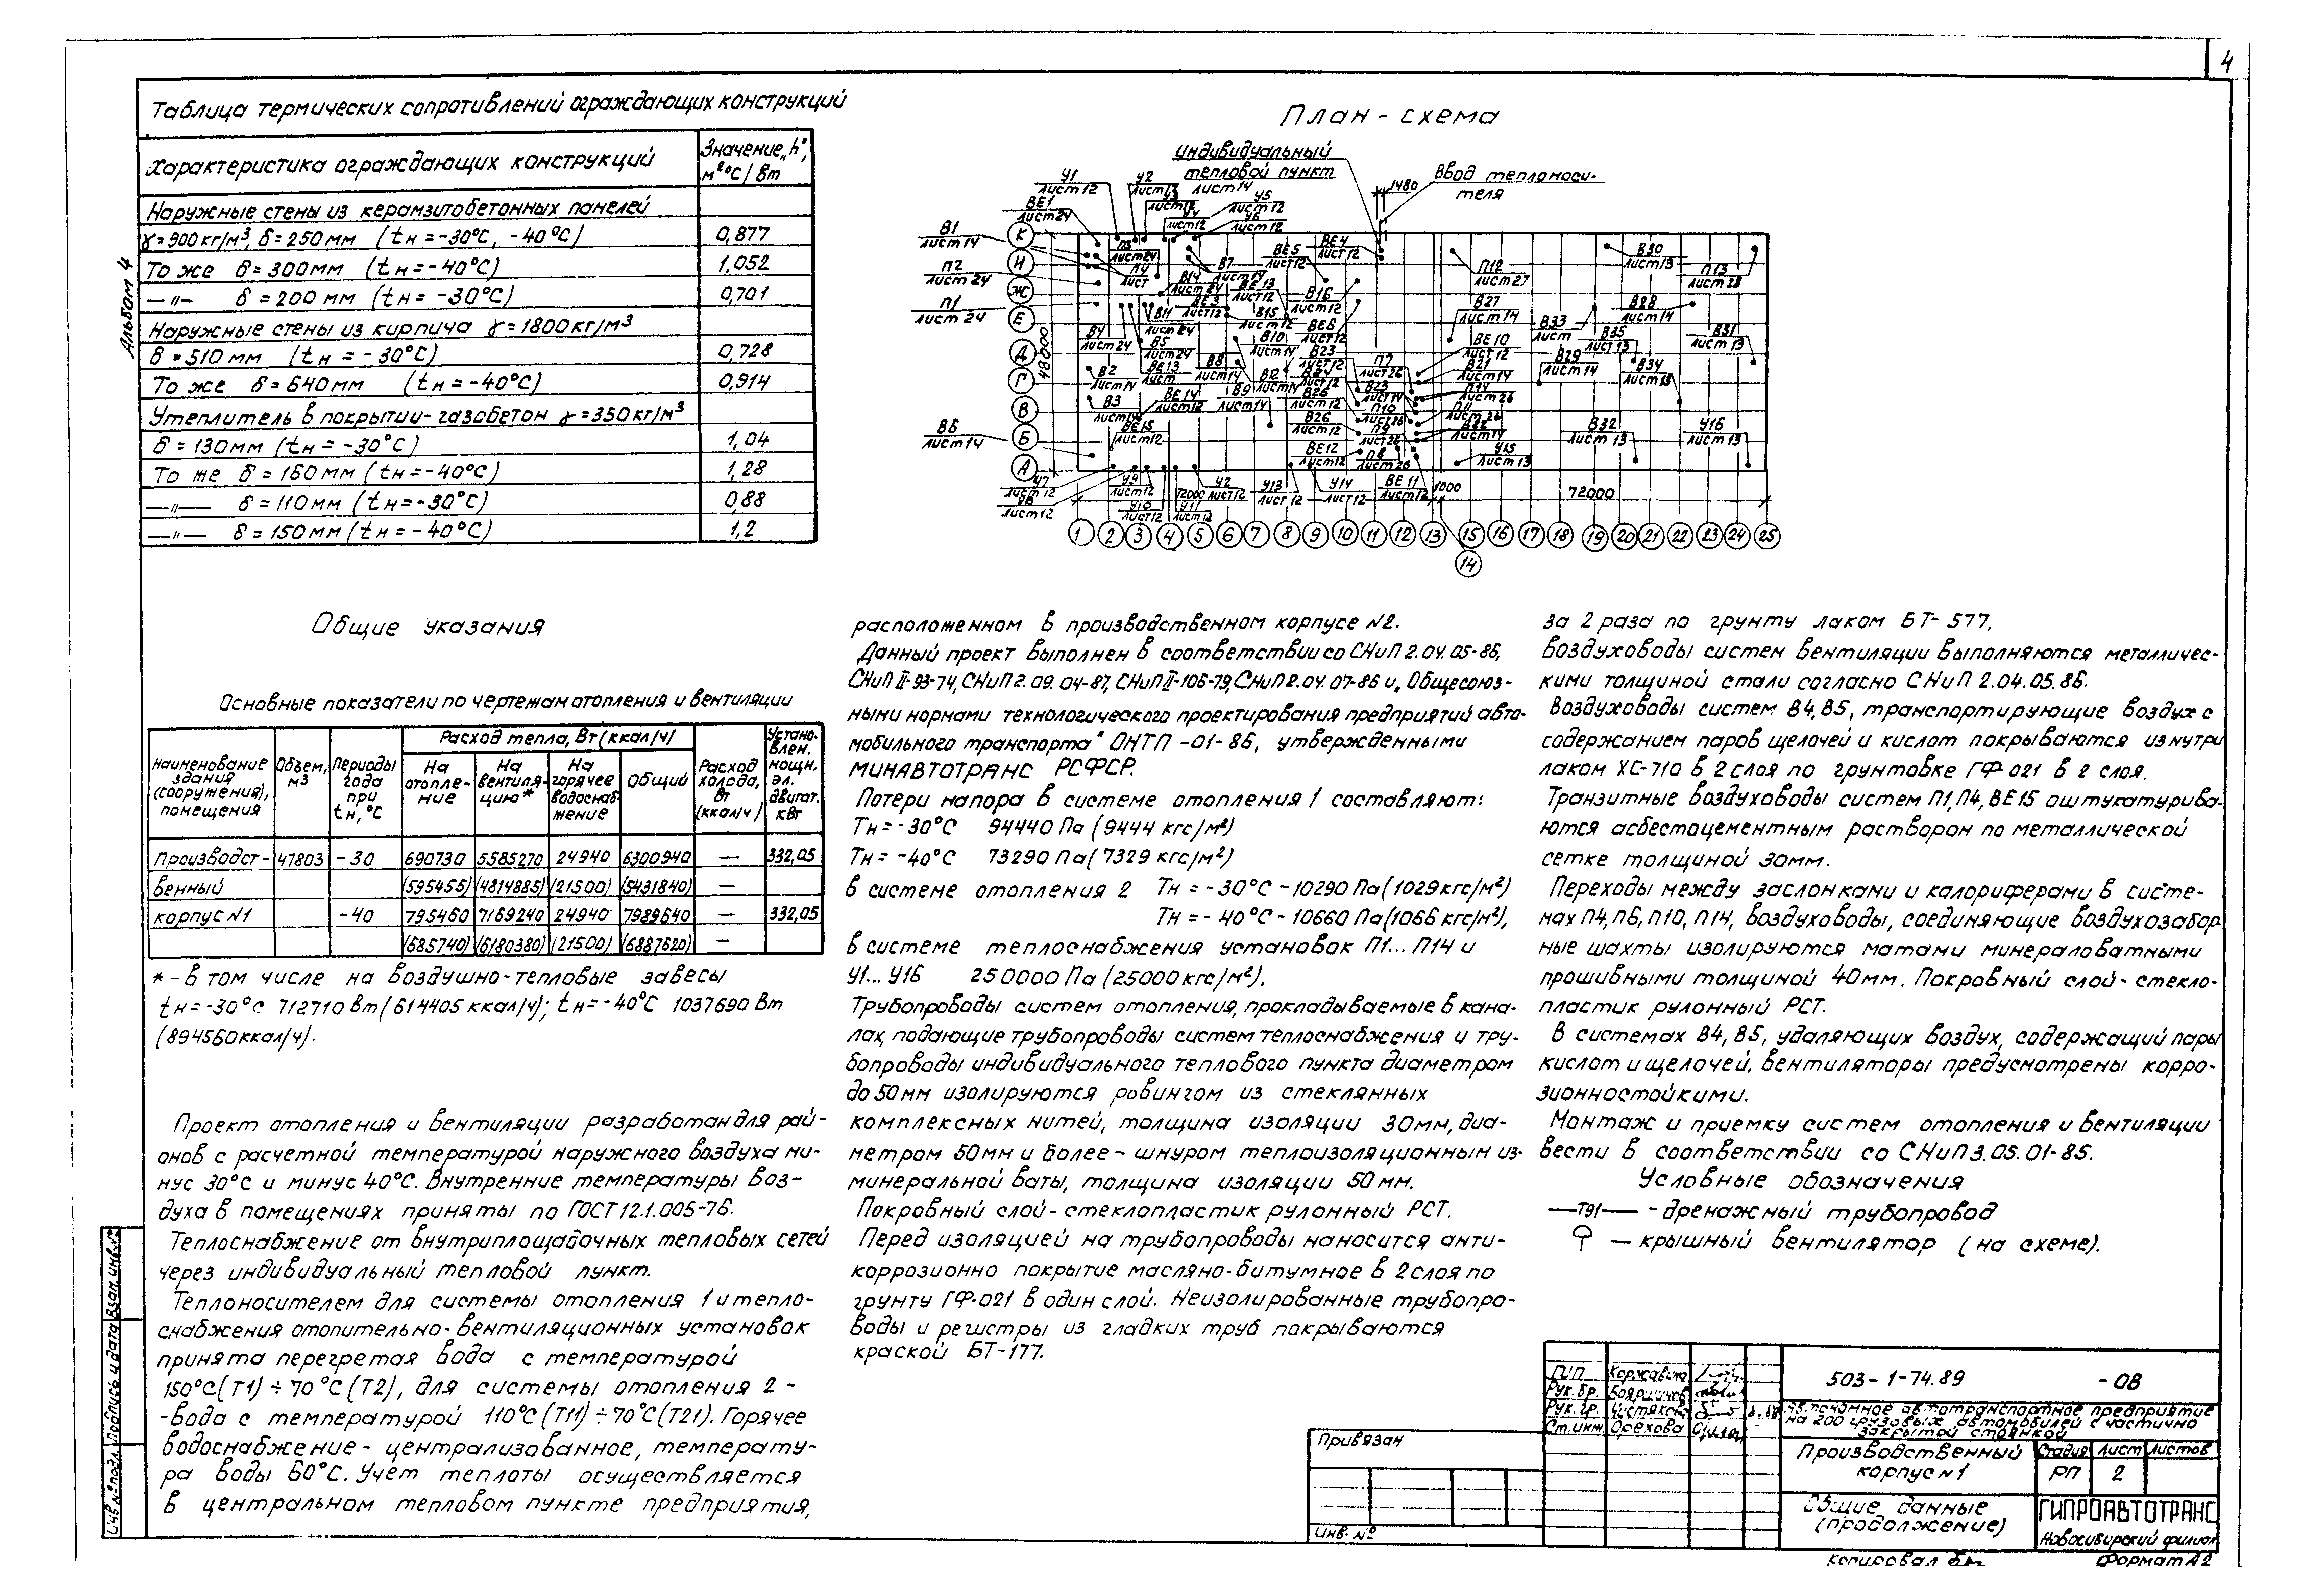 4
Альбом 4
Таблица термических сопротивлений ограждающих конструкций
Характеристика ограждающих конструкций | Значение „h”, м²°С/Вт
Наружные стены из керамзитобетонных панелей
γ=900кг/м³, δ=250мм (tн=-30°С, -40°С) | 0,877
То же δ=300мм (tн=-40°С) | 1,052
—"— δ=200мм (tн=-30°С) | 0,701
Наружные стены из кирпича γ=1800кг/м³
δ=510мм (tн=-30°С) | 0,728
То же δ=640мм (tн=-40°С) | 0,914
Утеплитель в покрытии-газобетон γ=350кг/м³
δ=130мм (tн=-30°С) | 1,04
То же δ=160мм (tн=-40°С) | 1,28
—"— δ=110мм (tн=-30°С) | 0,88
—"— δ=150мм (tн=-40°С) | 1,2
План-схема
индивидуальный
тепловой пункт
лист14
Ввод теплоноси-
теля
1480
У1 лист12
У2 лист13
У5 лист12
У6 лист12
ВЕ1 лист24
В1 лист14
П2 лист24
П1 лист24
В6 лист14
П3 лист24
П4 лист
В7 лист14
В14 лист24
ВЕ5 лист12
ВЕ4 лист12
ВЕ13 лист12
ВЕ3 лист12
В15 лист12
В16 лист12
В11 лист24
В4 лист24
В5 лист24
В10 лист14
ВЕ6 лист12
В23 лист12
В8 лист14
ВЕ13 лист
В2 лист14
В3 лист14
ВЕ14 лист12
В9 лист14
В12 лист14
ВЕ15 лист12
В26 лист12
ВЕ12 лист12
П7 лист26
П10 лист26
П9 лист26
П8 лист26
П12 лист27
В27 лист14
ВЕ10 лист12
В21 лист14
П14 лист26
П11 лист26
В22 лист14
У15 лист13
В30 лист13
П13 лист28
В28 лист14
В33 лист
В35 лист13
В31 лист13
В29 лист14
В34 лист13
В32 лист13
У16 лист13
У7 лист12
У8 лист12
У9 лист12
У10 лист12
У11 лист12
У2 лист12
У13 лист12
У14 лист12
ВЕ11 лист12
48000
72000
1000
72000
К И Ж Е Д Г В Б А
1 2 3 4 5 6 7 8 9 10 11 12 13 15 16 17 18 19 20 21 22 23 24 25
14
Общие указания
Основные показатели по чертежам отопления и вентиляции
Наименование здания (сооружения), помещения | Объем, м3 | Периоды года при tн,°С | Расход тепла, Вт(ккал/ч) | Расход холода, Вт (ккал/ч) | Установлен. мощн. эл. двигат. кВт
На отопле-ние | На вентиля-цию* | На горячее водоснаб-жение | Общий
Производст- | 47803 | -30 | 690730 | 5585270 | 24940 | 6300940 | — | 332,05
венный | (595455) | (4814885) | (21500) | (5431840) | —
корпус N1 | -40 | 795460 | 7169240 | 24940 | 7989640 | — | 332,05
(685740) | (6180380) | (21500) | (6887620) | —
*-в том числе на воздушно-тепловые завесы
tн=-30°С 712710 Вт(614405 ккал/ч); tн=-40°С 1037690 Вт
(894560ккал/ч).
Проект отопления и вентиляции разработан для рай-
онов с расчетной температурой наружного воздуха ми-
нус 30°С и минус 40°С. Внутренние температуры воз-
духа в помещениях приняты по ГОСТ 12.1.005-76.
Теплоснабжение от внутриплощадочных тепловых сетей
через индивидуальный тепловой пункт.
Теплоносителем для системы отопления 1 и тепло-
снабжения отопительно-вентиляционных установок
принята перегретая вода с температурой
150°С(Т1)÷70°С(Т2), для системы отопления 2 -
-вода с температурой 110°С(Т11)÷70°С(Т21). Горячее
водоснабжение- централизованное, температу-
ра воды 60°С. Учет теплоты осуществляется
в центральном тепловом пункте предприятия,
расположенном в производственном корпусе N2.
Данный проект выполнен в соответствии со СНиП 2.04.05-86,
СНиП II-93-74, СНиП 2.09.04-87, СНиП II-106-79, СНиП 2.04.07-86 и „Общесоюз-
ными нормами технологического проектирования предприятий авто-
мобильного транспорта" ОНТП-01-86, утвержденными
МИНАВТОТРАНС РСФСР.
Потери напора в системе отопления 1 составляют:
Тн=-30°С 94440 Па (9444 кгс/м²)
Тн=-40°С 73290 Па(7329 кгс/м²)
в системе отопления 2 Тн=-30°С-10290 Па(1029кгс/м²)
Тн=-40°С-10660 Па(1066 кгс/м²),
в системе теплоснабжения установок П1...П14 и
У1...У16 250000 Па (25000кгс/м²).
Трубопроводы систем отопления, прокладываемые в кана-
лах, подающие трубопроводы систем теплоснабжения и тру-
бопроводы индивидуального теплового пункта диаметром
до 50мм изолируются ровингом из стеклянных
комплексных нитей, толщина изоляции 30мм, диа-
метром 50мм и более- шнуром теплоизоляционным из
минеральной ваты, толщина изоляции 50мм.
Покровный слой-стеклопластик рулонный РСТ.
Перед изоляцией на трубопроводы наносится анти-
коррозионно покрытие масляно-битумное в 2 слоя по
грунту ГФ-021 в один слой. Неизолированные трубопро-
воды и регистры из гладких труб покрываются
краской БТ-177.
за 2 раза по грунту лаком БТ-577.
Воздуховоды систем вентиляции выполняются металличес-
кими толщиной стали согласно СНиП 2.04.05.86.
Воздуховоды систем В4, В5, транспортирующие воздух с
содержанием паров щелочей и кислот покрываются изнутри
лаком ХС-710 в 2 слоя по грунтовке ГФ-021 в 2 слоя.
Транзитные воздуховоды систем П1, П4, ВЕ15 оштукатурива-
ются асбестоцементным раствором по металлической
сетке толщиной 30мм.
Переходы между заслонками и калориферами в систе-
мах П4, П6, П10, П14, воздуховоды, соединяющие воздухозабор-
ные шахты изолируются матами минераловатными
прошивными толщиной 40мм. Покровный слой-стекло-
пластик рулонный РСТ.
В системах В4, В5, удаляющих воздух, содержащий пары
кислот и щелочей, вентиляторы предусмотрены корро-
зионностойкими.
Монтаж и приемку систем отопления и вентиляции
вести в соответствии со СНиП 3.05.01-85.
Условные обозначения
—Т91— -дренажный трубопровод
— крышный вентилятор (на схеме).
Инв.№ подл. Подпись и дата Взам. инв.№
Привязан
Инв. №
ГИП Коржавин
Рук.бр. Бояршинов
Рук.гр. Чистяков
Ст.инж. Орехова
503-1-74.89 -ОВ
Автономное автотранспортное предприятие
на 200 грузовых автомобилей с частично
закрытой стоянкой
Производственный
корпус N1
Стадия Лист Листов
РП 2
Общие данные
(продолжение)
ГИПРОАВТОТРАНС
Новосибирский филиал
Копировал
Формат А2